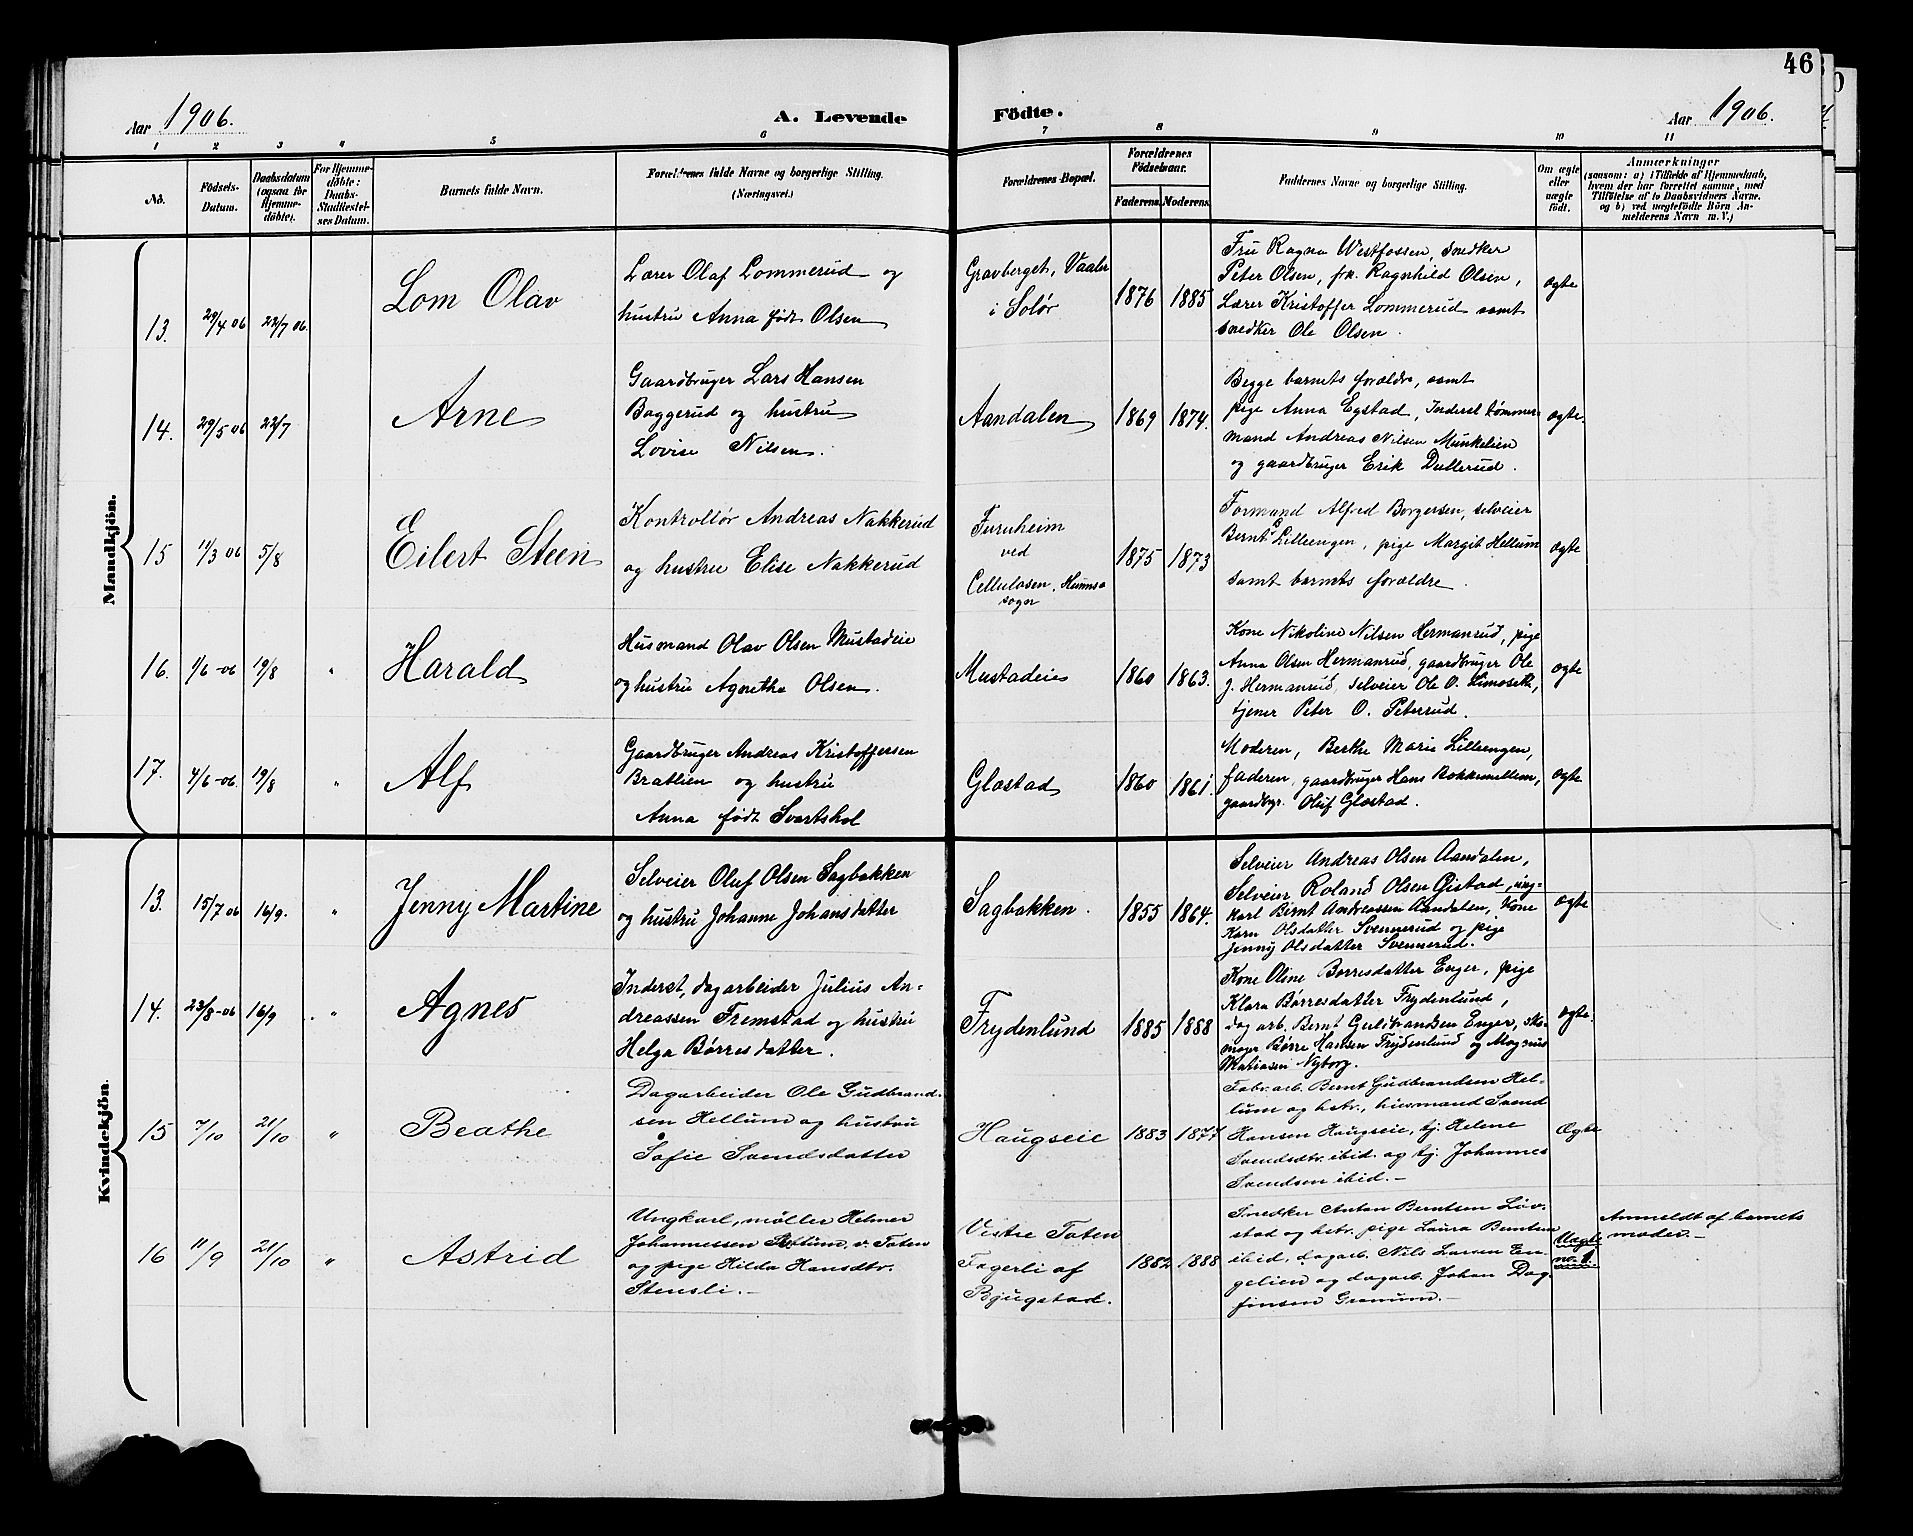 46
Aar 1906.
A. Levende Födte.
Aar 1906.
1 2 3 4 5 6 7 8 9 10 11
No.
Födsels-
Datum.
Daabsdatum
(ogsaa for
Hjemme-
döbte).
For Hjemme-
döbte:
Daabs-
Stadfæstel-
ses Datum.
Barnets fulde Navn.
Forældrenes fulde Navne og borgerlige Stilling.
(Næringsvei.)
Forældrenes Bopæl.
Forældrenes
Födselsaar.
Faderens. Moderens.
Faddernes Navne og borgerlige Stilling.
Om ægte
eller
uægte
födt.
Anmærkninger
(saasom: a) i Tilfælde af Hjemmedaab,
hvem der har forrettet samme, med
Tilföielse af to Daabsvidners Navne.
og b) ved uægtefödte Börn An-
melderens Navn m. V.)
Mandkjön.
13.
29/4 06
22/7 06.
Lom Olav
Lærer Olaf Lommerud og
hustru Anna født Olsen
Gravberget, Vaaler
i Solør
1876
1885
Fru Ragna Westfossen, snedker
Peter Olsen, frk. Ragnhild Olsen,
Lærer Kristoffer Lommerud samt
snedker Ole Olsen.
ægte
14.
29/5 06
22/7
Arne
Gaardbruger Lars Hansen
Baggerud og hustru
Lovise Nilsen.
Aandalen
1869
1874.
Begge barnets forældre, samt
pige Anna Egstad, Inderst tømmer-
mand Andreas Nilsen Munkelien
og gaardbruger Erik Dullerud.
ægte.
15
11/3 06
5/8
Eilert Steen
Kontrollør Andreas Nakkerud
og hustru Elise Nakkerud
Furuheim
ved
Cellulosen, Hunns
sogn
1875
1873
Formand Alfred Borgersen, selveier
Bernt Lilleengen, pige Margit Hellum
samt barnets forældre.
ægte
16.
1/6 -06
19/8
"
Harald
Husmand Olav Olsen Mustadeie
og hustru Agnethe Olsen.
Mustadeie
1860
1863.
Kone Nikoline Nilsen Hermanrud, pige
Anna Olsen Hermanrud, gaardbruger Ole
J. Hermanrud, selveier Ole O.
tjener Peter O. Peterrud.
ægte
17.
4/6 -06.
19/8
"
Alf
Gaardbruger Andreas Kristoffersen
Bratlien og hustru
Anna født Svartshol
Glæstad
1860
1861.
Moderen, Berthe Marie Lilleengen,
faderen, gaardbruger Hans Bokkemellem,
gaardbgr. Oluf Glæstad.
ægte
Kvindekjön.
13.
15/7 06
16/9.
"
Jenny Martine
Selveier Oluf Olsen Sagbakken
og hustru Johanne Johansdatter
Sagbakken.
1855
1864.
Selveier Andreas Olsen Aandalen,
Selveier Roland Olsen Gistad, ung-
karl Bernt Andreassen Aandalen, kone
Karn Olsdatter Svennerud og pige
Jenny Olsdatter Svennerud.
ægte
14.
23/8 -06
16/9
"
Agnes
Inderst, dagarbeider Julius An-
dreassen Fremstad og hustru
Helga Børresdatter.
Frydenlund
1885
1888
Kone Oline Børresdatter Enger, pige
Klara Børresdatter Frydenlund,
dag arb. Bernt Gulbrandsen Enger, sko-
mager Børre Hansen Frydenlund og Magnus
Matiasen Nyborg.
ægte.
15
7/10
21/10
"
Beathe
Dagarbeider Ole Gudbrand-
sen Hellum og hustru
Sofie Svendsdatter
Haugseie
1883
1877
Fabr.arb. Bernt Gudbrandsen Hel-
lum og hstr., husmand Svend
Hansen Haugseie, tj. Helene
Svendsdtr. ibid. og tj. Johannes
Svendsen ibid. -
Ægte
16
11/9
21/10
"
Astrid
Ungkarl, møller Helmer
Johannessen v. Toten
og pige Hilda Hansdtr.
Stensli. -
Vestre Toten
Fagerli af
Bjugstad.
1882
1888
Snedker Anton Berntsen Løv-
stad og hstr. pige Laura Berntsen
ibid., dagarb. Nils Larsen En-
gelien og dagarb. Johan Dag-
finsen Granum. -
Uægte
no. 1.
Anmeldt af barnets
moder. -